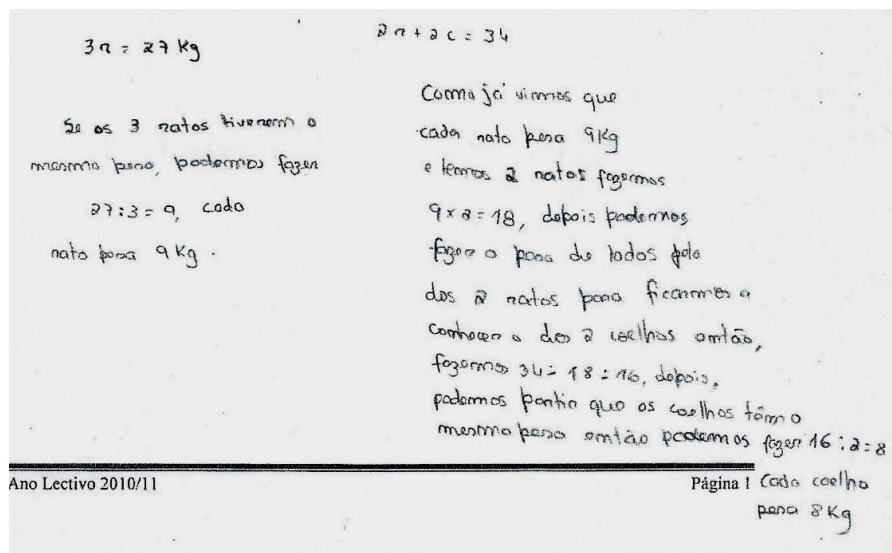 3r = 27 Kg
Se os 3 ratos tiverem o
mesmo peso, podemos fazer
27:3 = 9, cada
rato pesa 9 Kg.
2r + 2c = 34
Como já vimos que
cada rato pesa 9Kg
e temos 2 ratos fazemos
9 x 2 = 18, depois podemos
fazer o peso de todos pelo
dos 2 ratos para ficarmos a
conhecer o dos 2 coelhos então,
fazemos 34 - 18 = 16, depois,
podemos partir que os coelhos têm o
mesmo peso então podemos fazer 16 : 2 = 8
Cada coelho
pesa 8 Kg
Ano Lectivo 2010/11
Página 1